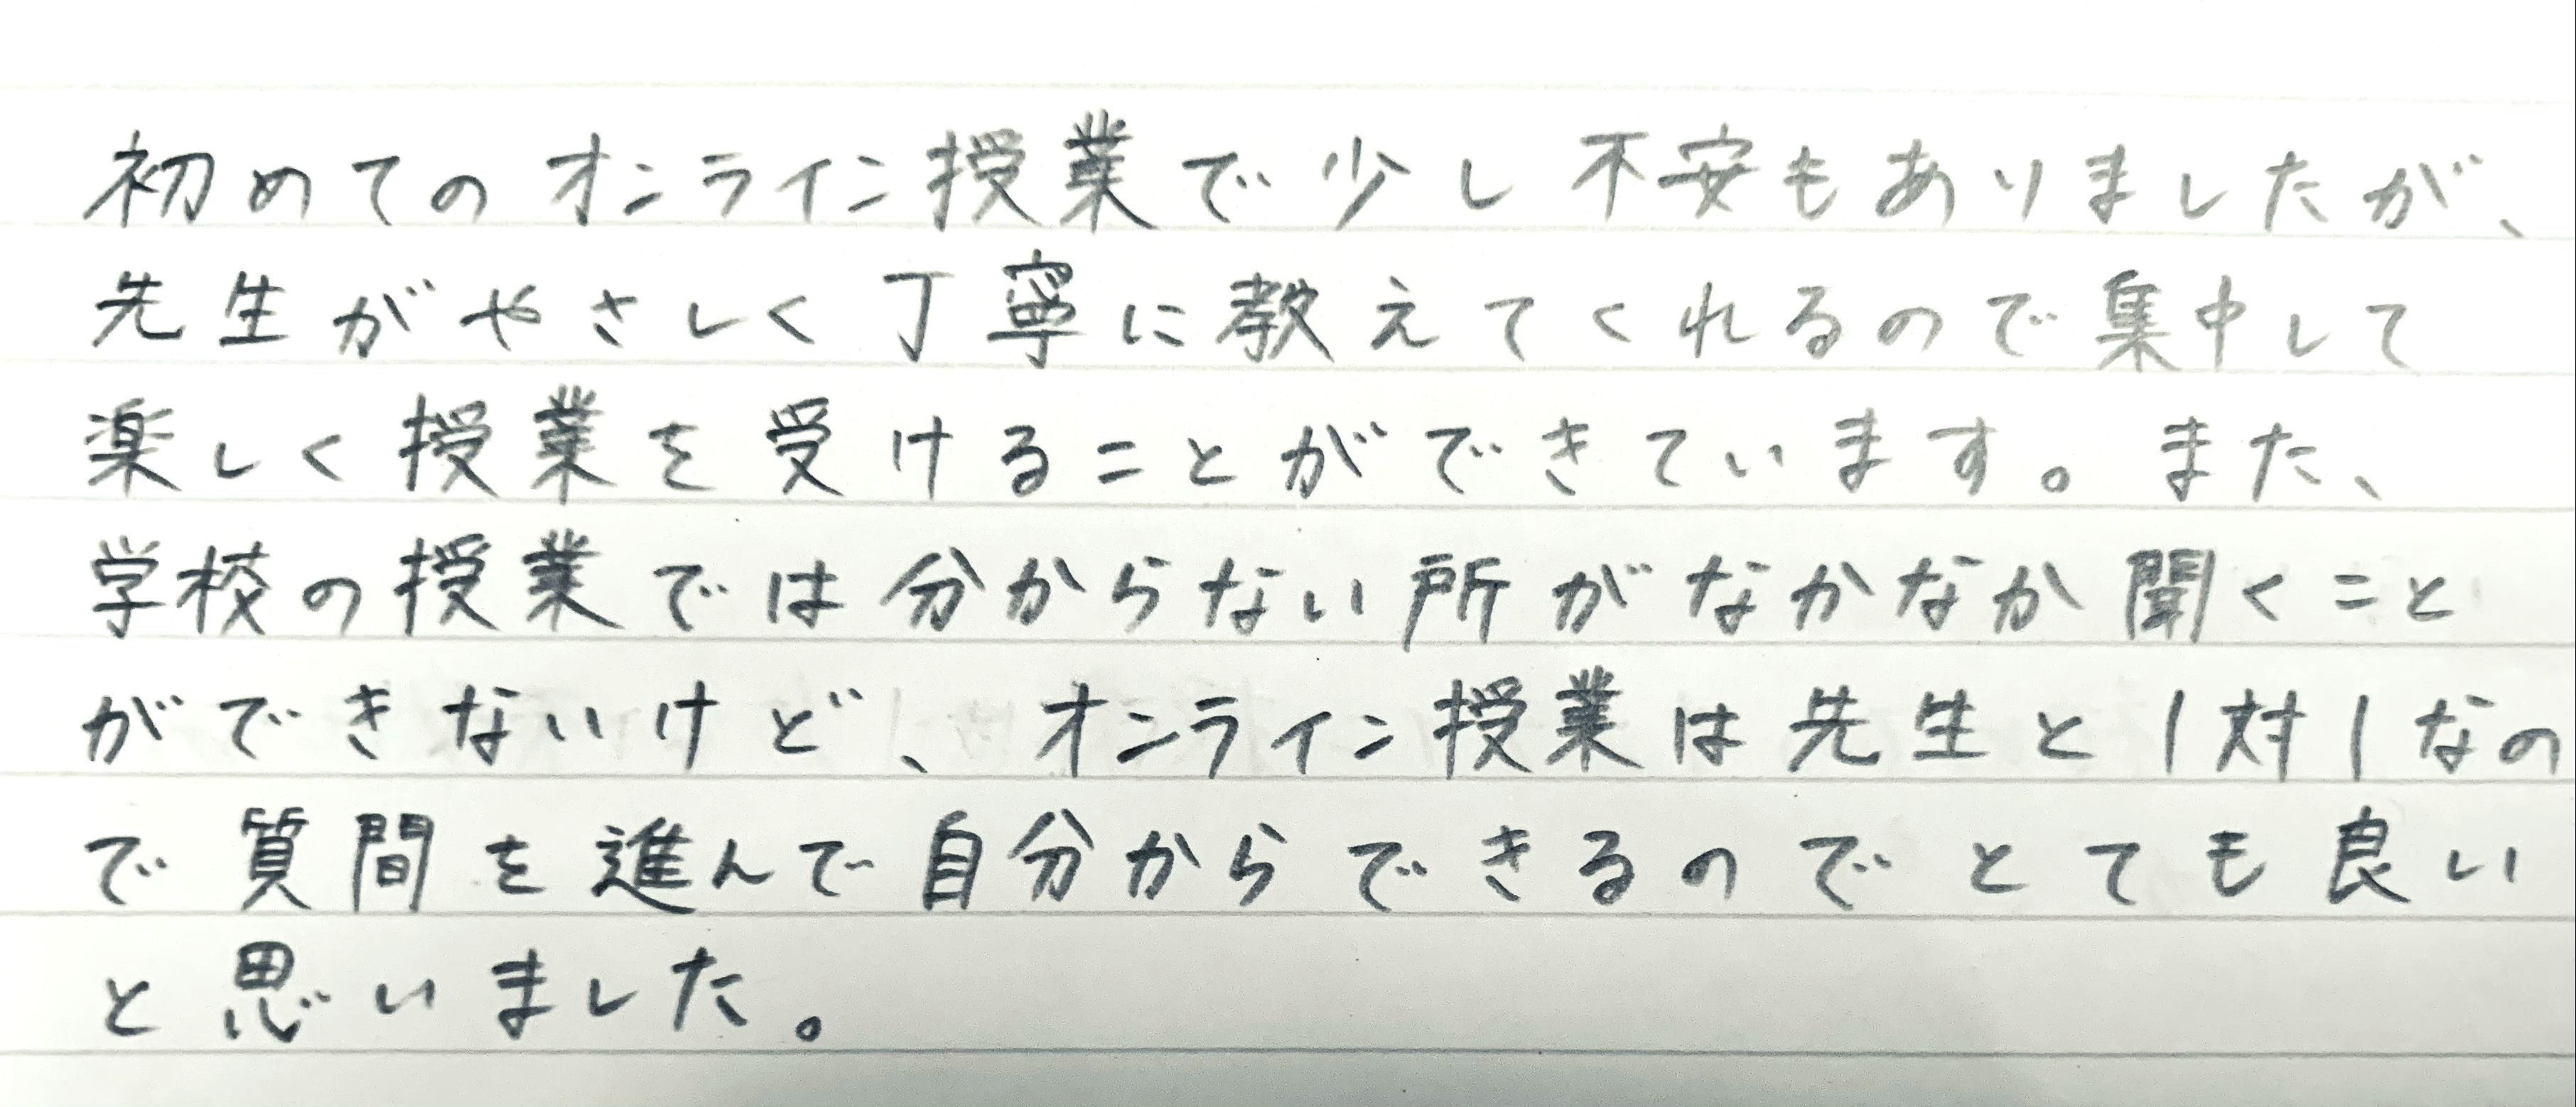 初めてのオンライン授業で少し不安もありましたが、
先生がやさしく丁寧に教えてくれるので集中して
楽しく授業を受けることができています。また、
学校の授業では分からない所がなかなか聞くこと
ができないけど、オンライン授業は先生と1対1なの
で質問を進んで自分からできるのでとても良い
と思いました。